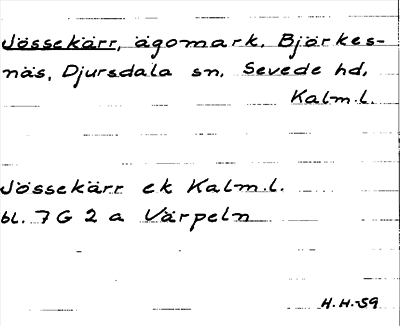 Jössekärr, ägomark, Björkes-
näs, Djursdala sn, Sevede hd,
Kalm.l.
Jössekärr ek Kalm.l.
bl. 7 G 2 a Värpeln
H.H.-59